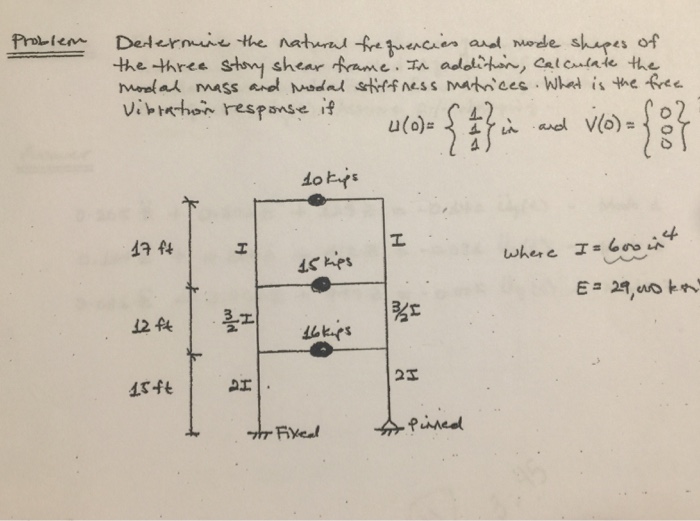 Problem Determine the natural frequencies and mode shapes of
the three story shear frame. In addition, calculate the
modal mass and modal stiffness matrices. What is the free
Vibration response if
u(0) = {1 1 1} in and v(0) = {0 0 0}
10 kips
17 ft
I
I
where I = 600 in⁴
15 kips
E = 29,000
12 ft
3/2 I
3/2 I
16 kips
15 ft
2I
2I
Fixed
Pinned